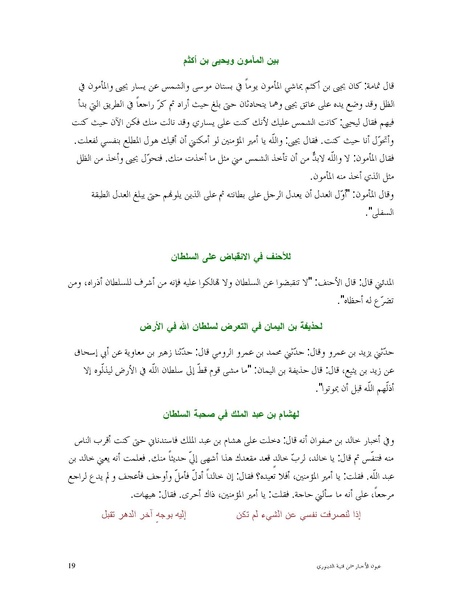 بين المأمون ويحيى بن أكثم
قال ثمامة: كان يحيى بن أكثم يماشي المأمون يوماً في بستان موسى والشمس عن يسار يحيى والمأمون في
الظل وقد وضع يده على عاتق يحيى وهما يتحادثان حتى بلغ حيث أراد ثم كرّ راجعاً في الطريق التي بدأ
فيهم فقال ليحيى: كانت الشمس عليك لأنك كنت على يساري وقد نالت منك فكن الآن حيث كنت
وأتحوّل أنا حيث كنت. فقال يحيى: والله يا أمير المؤمنين لو أمكنني أن أقيك هول المطلع بنفسي لفعلت.
فقال المأمون: لا والله لابدٌّ من أن تأخذ الشمس مني مثل ما أخذت منك. فتحوّل يحيى وأخذ من الظل
مثل الذي أخذ منه المأمون.
وقال المأمون: "أوّل العدل أن يعدل الرجل على بطانته ثم على الذين يلونهم حتى يبلغ العدل الطبقة
السفلى".
للأحنف في الانقباض على السلطان
المدئني قال: قال الأحنف: "لا تنقبضوا عن السلطان ولا تهالكوا عليه فإنه من أشرف للسلطان أذراه، ومن
تضرّع له أحظاه".
لحذيفة بن اليمان في التعرض لسلطان الله في الأرض
حدّثني يزيد بن عمرو وقال: حدّثني محمد بن عمرو الرومي قال: حدّثنا زهير بن معاوية عن أبي إسحاق
عن زيد بن يثيع، قال: قال حذيفة بن اليمان: "ما مشى قوم قطّ إلى سلطان الله في الأرض ليذلّوه إلا
أذلّهم الله قبل أن يموتوا".
لهشام بن عبد الملك في صحبة السلطان
وفي أخبار خالد بن صفوان أنه قال: دخلت على هشام بن عبد الملك فاستدناني حتى كنت أقرب الناس
منه فتنفّس ثم قال: يا خالد، لربّ خالدٍ قعد مقعدك هذا أشهى إليّ حديثاً منك. فعلمت أنه يعني خالد بن
عبد الله. فقلت: يا أمير المؤمنين، أفلا تعيده؟ فقال: إن خالداً أدلّ فأملّ وأوجف فأعجف و لم يدع لراجع
مرجعاً، على أنه ما سألني حاجة. فقلت: يا أمير المؤمنين، ذاك أحرى. فقال: هيهات.
إذا انصرفت نفسي عن الشيء لم تكن إليه بوجهٍ آخر الدهر تقبل
عيون الأخبار-ابن قتيبة الدينوري 19